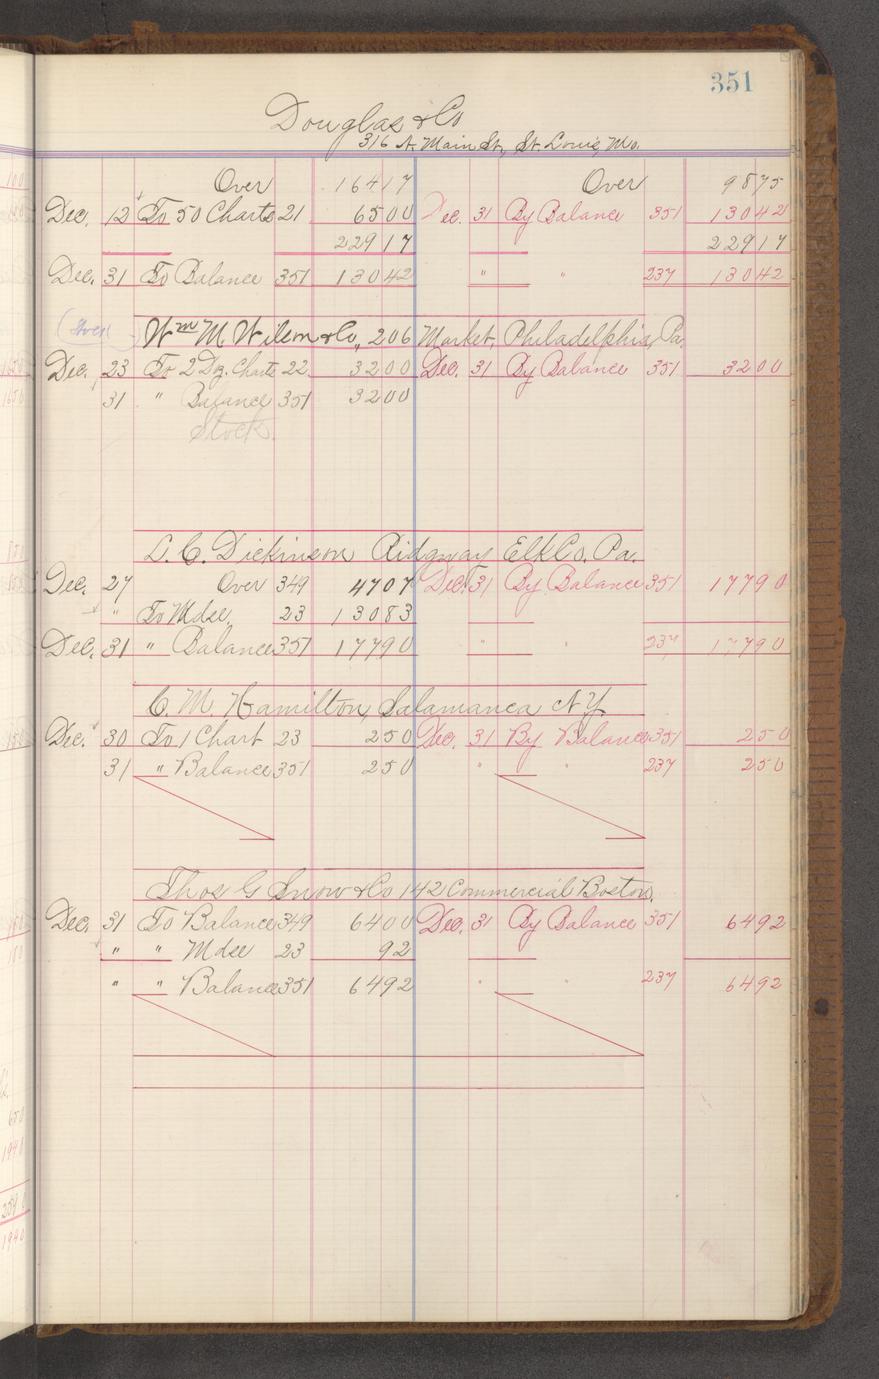 351
Douglas & Co
316 N. Main St., St. Louis, Mo.
Over 16417 Over 9875
Dec. 12 To 50 Charts 21 6500 Dec. 31 By Balance 351 13042
22917 22917
Dec. 31 To Balance 351 13042 " " 237 13042
Wm M. Wilson & Co., 206 Market, Philadelphia, Pa.
Dec. 23 To 2 Doz. Charts 22 3200 Dec. 31 By Balance 351 3200
31 " Balance 351 3200
Stock
L. C. Dickinson Ridgway Elk Co. Pa.
Dec. 27 Over 349 4707 Dec. 31 By Balance 351 17790
" To Mdse. 23 13083
Dec. 31 " Balance 351 17790 " " 237 17790
C. M. Hamilton, Salamanca N.Y.
Dec. 30 To 1 Chart 23 250 Dec. 31 By Balance 351 250
31 " Balance 351 250 " " 237 250
Thos G Snow & Co 142 Commercial Boston.
Dec. 31 To Balance 349 6400 Dec. 31 By Balance 351 6492
" " Mdse 23 92
" " Balance 351 6492 " " 237 6492